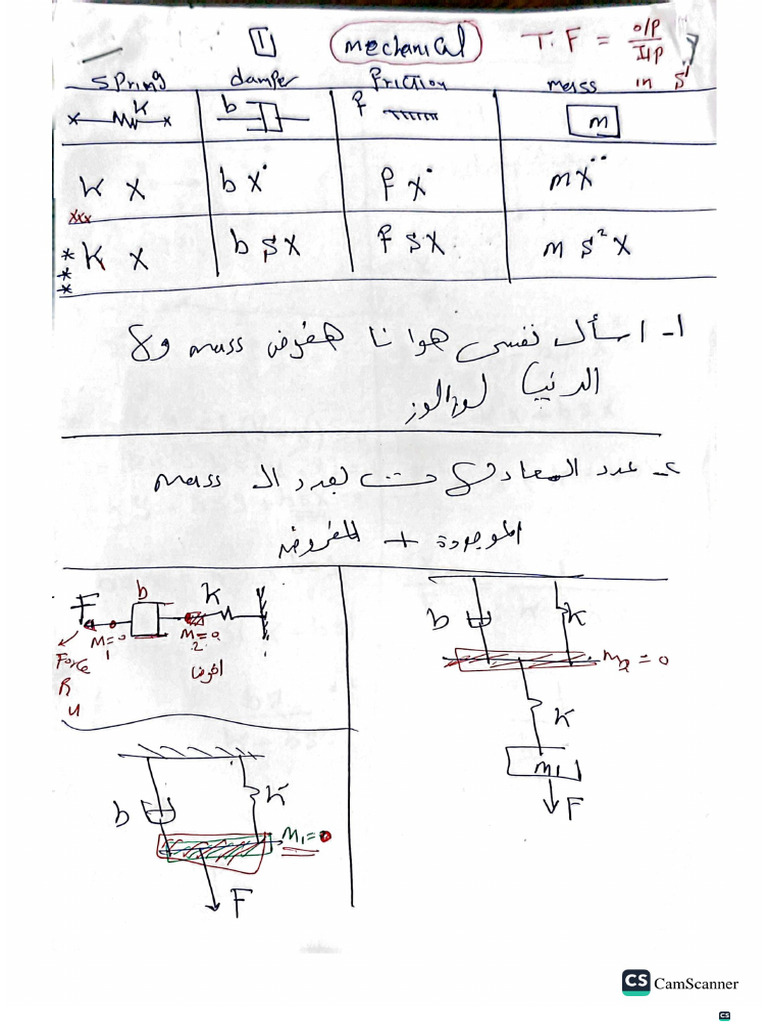 1 mechanical T.F = o/P / I/P in S
spring damper friction mass
k b f m
k x b x˙ f x˙ m x˙˙
xxx
*** k x b s x f s x m s² x
١- اسأل نفسى هو انا هفرض mass ولا
الدنيا لوز اللوز
٢- عدد المعادلات بعدد ال mass
الموجودة + المفروضه
F b k
M1 = 0 M2 = 0
Force
R
u
b k
M2 = 0
k
m1
F
b k
M1 = 0
F
CS CamScanner
CS